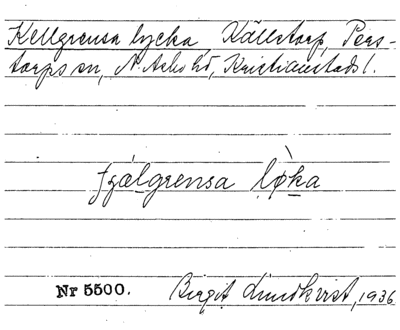 Kellgrensa lycka Källstorp, Pers-
torps sn, N. Åsbo hd, Kristianstads l.
fjälgrensa lø̀ka
Nr 5500. Birgit Lundkvist, 1936